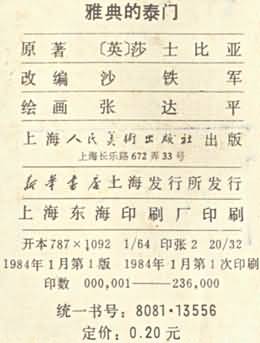 雅典的泰门
原著 〔英〕莎士比亚
改编 沙铁军
绘画 张达平
上海人民美术出版社出版
上海长乐路672弄33号
新华书店上海发行所发行
上海东海印刷厂印刷
开本787×1092 1/64 印张2 20/32
1984年1月第1版 1984年1月第1次印刷
印数 000,001——236,000
统一书号：8081·13556
定价：0.20元